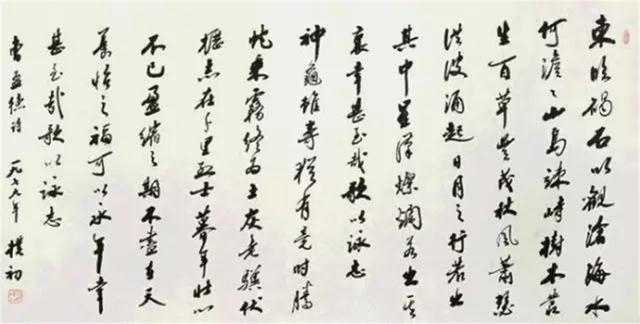 東臨碣石以觀滄海水
何澹々山島竦峙樹木叢
生百草豐茂秋風蕭瑟
洪波涌起日月之行若出
其中星漢燦爛若出其
裏幸甚至哉歌以詠志
神龜雖壽猶有竟時騰
蛇乘霧終為土灰老驥伏
櫪志在千里烈士暮年壯心
不已盈縮之期不盡在天
養怡之福可以永年幸
甚至哉歌以詠志
曹孟德詩 一九 年 樸初